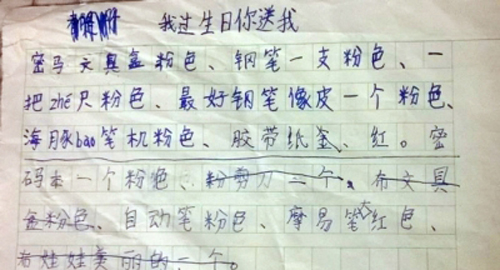 我过生日你送我
密马文具盒粉色、钢笔一支粉色、一
把zhé尺粉色、最好钢笔像皮一个粉色、
海豚bao笔机粉色、胶带纸盒、红。密
码本一个粉色、粉剪刀一个、布文具
盒粉色、自动笔粉色、摩易笔红色、
着娃娃美丽的一个。